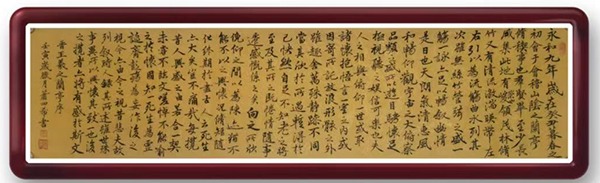 永和九年歲在癸丑暮春之
初會于會稽山陰之蘭亭
脩稧事也群賢畢至少長
咸集此地有崇領茂林脩
竹又有清流激湍暎帶左
右引以為流觴曲水列坐其
次雖無絲竹管弦之盛一
觴一詠亦足以暢敘幽情
是日也天朗氣清惠風
和暢仰觀宇宙之大俯察
品類之盛所以遊目騁懷足
以極視聽之娛信可樂也夫
人之相與俯仰一世或取
諸懷抱悟言一室之內或
因寄所託放浪形骸之外
雖趣舍萬殊靜躁不同
當其欣於所遇蹔得於
己怏然自足不知老之將
至及其所之既惓情隨事
遷感慨係之矣向之所欣
俛仰之間以為陳迹猶不
能不以之興懷況脩短隨
化終期於盡古人云死生
亦大矣豈不痛哉每攬
昔人興感之由若合一契
未嘗不臨文嗟悼不能喻
之於懷固知一死生為虛
誕齊彭殤為妄作後之
視今亦由今之視昔悲夫故
列敘時人錄其所述雖世殊
事異所以興懷其致一也後
之攬者亦將有感於斯文
晉王羲之蘭亭序
壬寅歲臘月